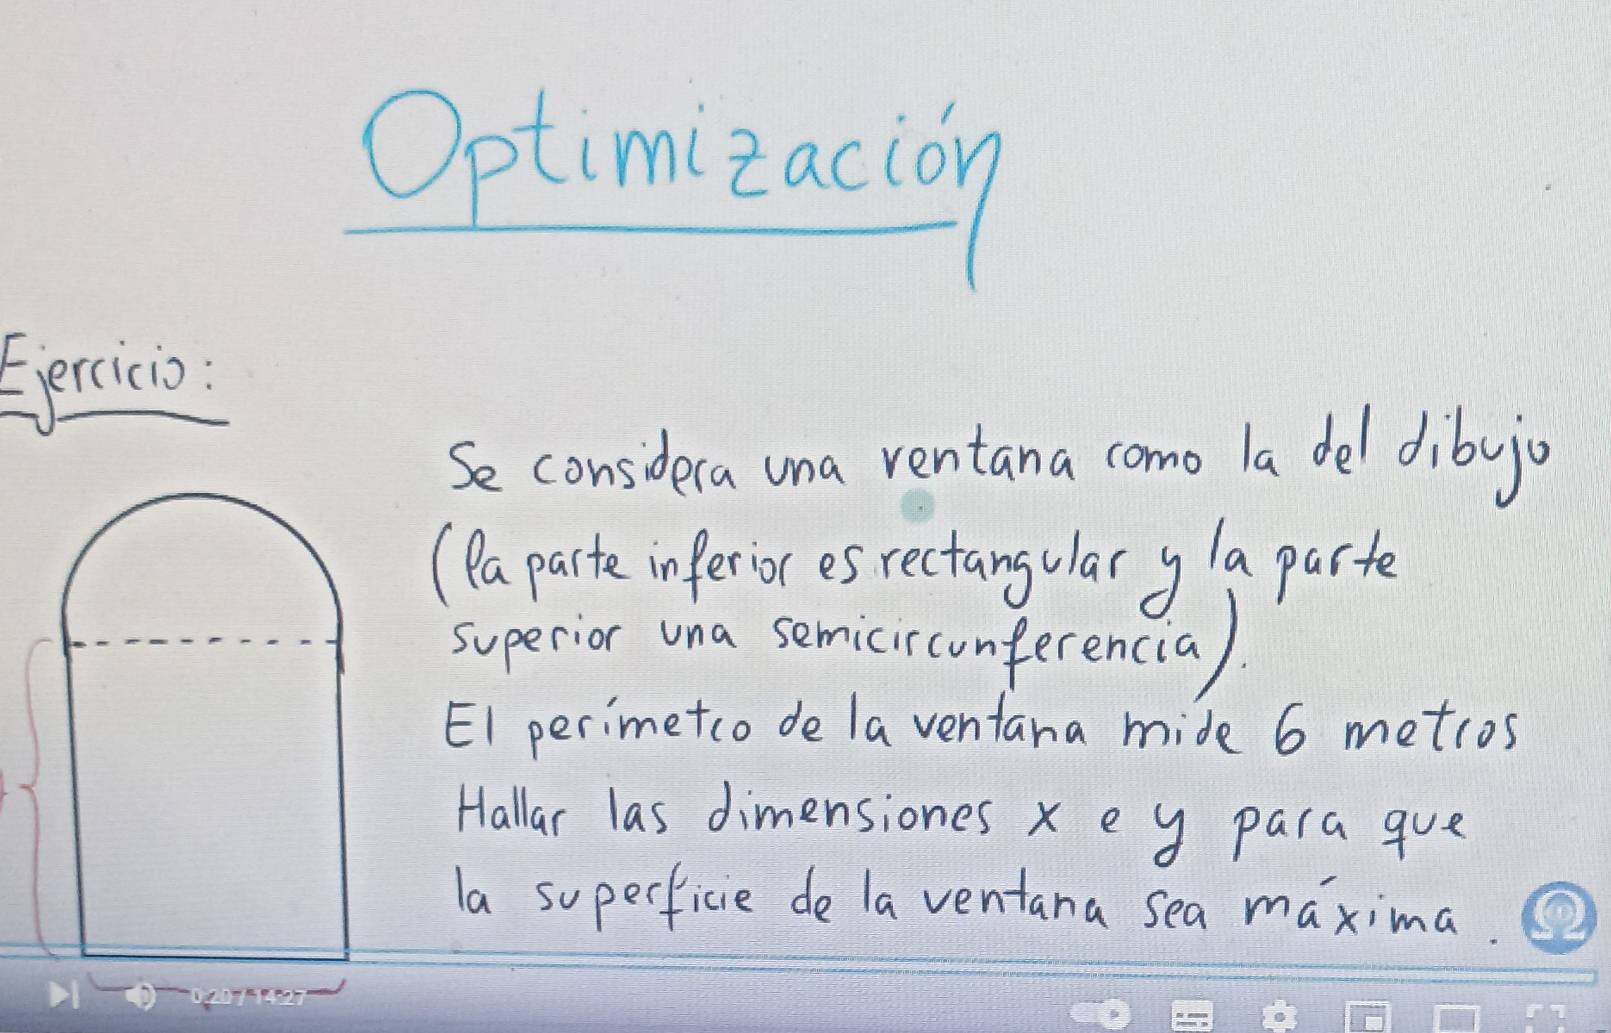 Optimización
Ejercicio:
Se considera una ventana como la del dibujo
(la parte inferior es rectangular y la parte
superior una semicircunferencia).
El perímetro de la ventana mide 6 metros
Hallar las dimensiones x e y para que
la superficie de la ventana sea máxima.
0:20 / 14:27